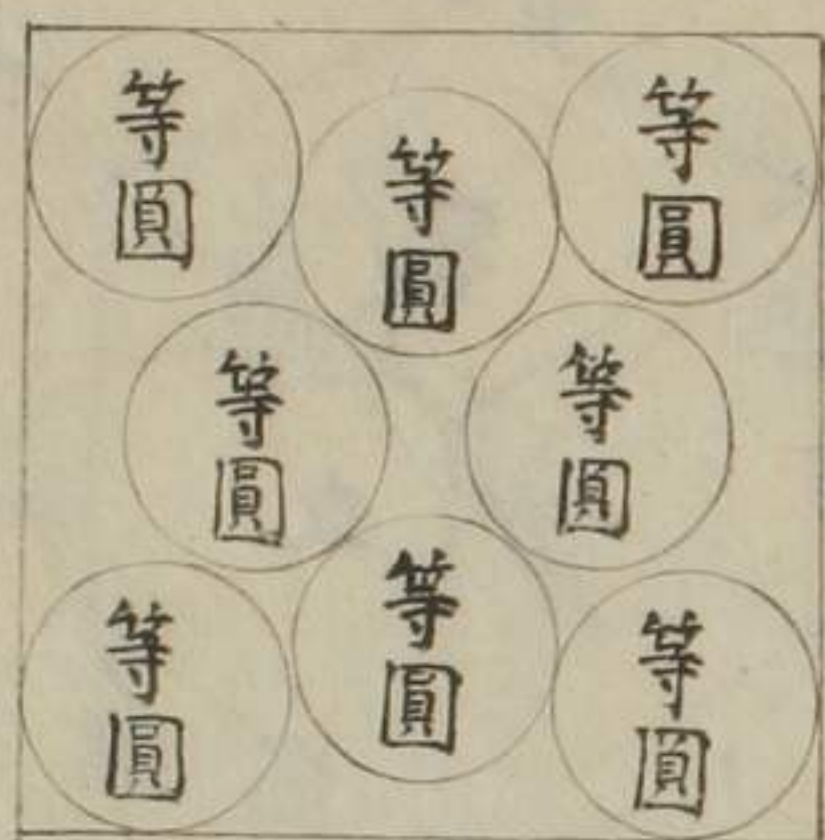 等圓
等圓
等圓
等圓
等圓
等圓
等圓
等圓